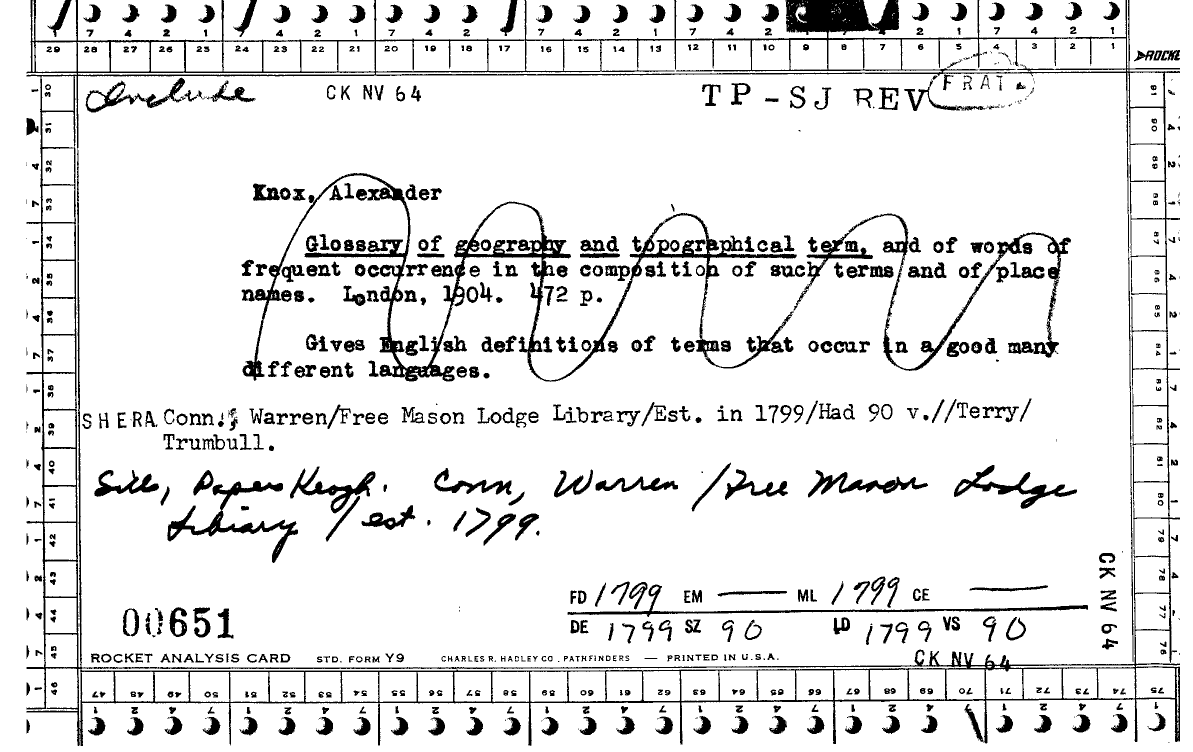 29 28 27 26 25 24 23 22 21 20 19 18 17 16 15 14 13 12 11 10 9 8 7 6 5 4 3 2 1
ROCKE
Include CK NV 64 TP-SJ REV FRAT
Knox, Alexander
Glossary of geography and topographical term, and of words of
frequent occurrence in the composition of such terms and of place
names. London, 1904. 472 p.
Gives English definitions of terms that occur in a good many
different languages.
SHERA Conn.; Warren/Free Mason Lodge Library/Est. in 1799/Had 90 v.//Terry/
Trumbull.
Papers Keogh. Conn, Warren / Free Mason Lodge
Library / est. 1799.
FD 1799 EM — ML 1799 CE —
DE 1799 SZ 90 LD 1799 VS 90
00651
CK NV 64
ROCKET ANALYSIS CARD STD. FORM Y9 CHARLES R. HADLEY CO., PATHFINDERS — PRINTED IN U.S.A.
CK NV 64
47 48 49 50 51 52 53 54 55 56 57 58 59 60 61 62 63 64 65 66 67 68 69 70 71 72 73 74 75